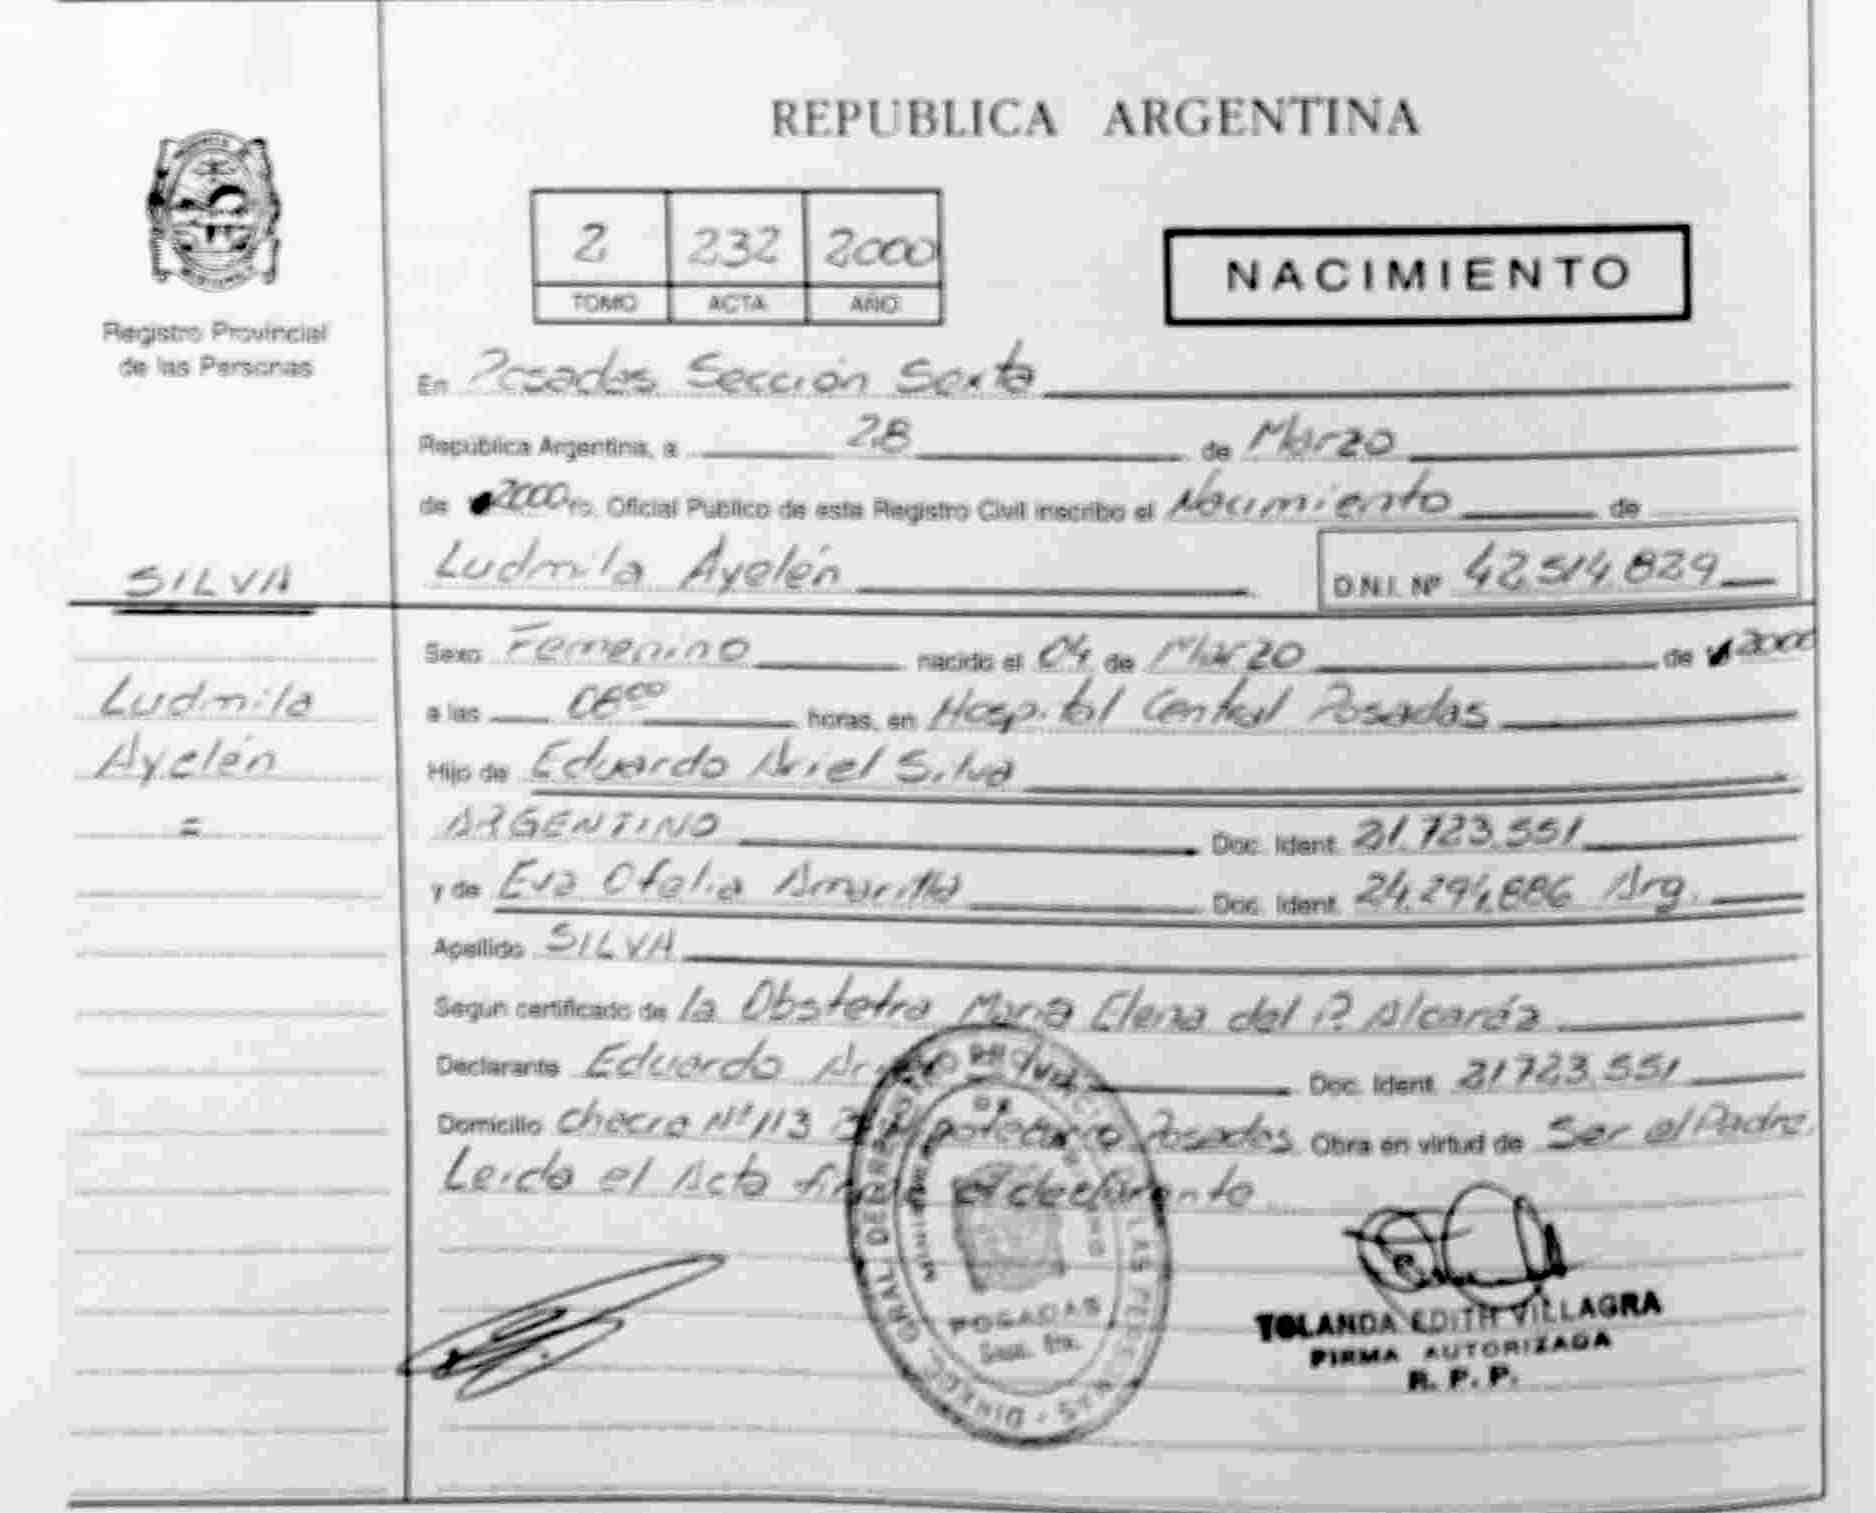 REPUBLICA ARGENTINA
2 232 2000
TOMO ACTA AÑO
NACIMIENTO
Registro Provincial
de las Personas
En Posadas Sección Sexta
República Argentina, a 28 de Marzo
de 2000 ro. Oficial Publico de este Registro Civil inscribo el Nacimiento de
SILVA
Ludmila Ayelén D.N.I. Nº 42.514.829
Ludmila
Ayelén
=
Sexo Femenino nacido el 04 de Marzo de 2000
a las horas, en Hospital Central Posadas
Hijo de Eduardo Ariel Silva
ARGENTINO Doc. Ident. 21.723.551
y de Eva Ofelia Amarilla Doc. Ident. 24.294.886 Arg.
Apellido SILVA
Segun certificado de la Obstetra Maria Elena del P. Alcaráz
Declarante Eduardo Doc. Ident. 21723.551
Domicilio Chacra Nº 113 Posadas Obra en virtud de Ser el Padre.
Leida el Acta firma el declarante
DIRECC. GRAL. DEL REGISTRO PROVINCIAL DE LAS PERSONAS
POSADAS
Secc. 6ta.
YOLANDA EDITH VILLAGRA
FIRMA AUTORIZADA
R. P. P.